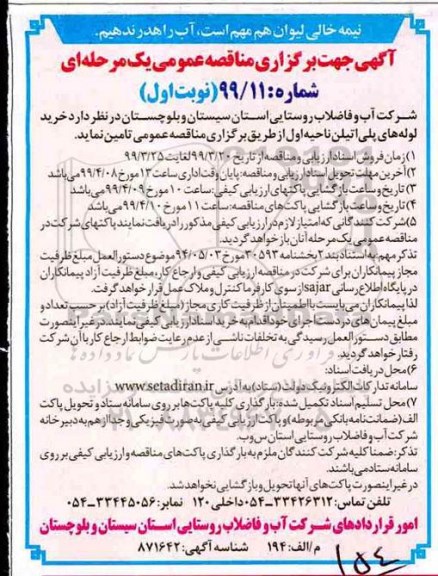 نیمه خالی لیوان هم مهم است، آب را هدر ندهیم.
آگهی جهت برگزاری مناقصه عمومی یک مرحله‌ای
شماره: ۹۹/۱۱ (نوبت اول)
شرکت آب و فاضلاب روستایی استان سیستان و بلوچستان در نظر دارد خرید
لوله‌های پلی اتیلن ناحیه اول از طریق برگزاری مناقصه عمومی تامین نماید.
۱) زمان فروش اسناد ارزیابی و مناقصه از تاریخ ۹۹/۳/۲۰ لغایت ۹۹/۳/۲۵
۲) آخرین مهلت تحویل اسناد ارزیابی و مناقصه: پایان وقت اداری ساعت ۱۳ مورخ ۹۹/۴/۰۸ می‌باشد
۳) تاریخ و ساعت بازگشایی پاکتهای ارزیابی کیفی: ساعت ۱۰ مورخ ۹۹/۴/۰۹ می‌باشد
۴) تاریخ و ساعت بازگشایی پاکت های مناقصه: ساعت ۱۱ مورخ ۹۹/۴/۱۰ می‌باشد
۵) شرکت کنندگانی که امتیاز لازم در ارزیابی کیفی مذکور را دریافت نمایند پاکتهای شرکت در
مناقصه عمومی یک مرحله آنان باز خواهد گردید.
تذکر مهم: به استناد بند ۲ بخشنامه ۳۰۵۹۳ مورخ ۹۴/۰۵/۰۳ موضوع دستورالعمل مبلغ ظرفیت
مجاز پیمانکاران برای شرکت در مناقصه ارزیابی کیفی و ارجاع کار، مبلغ ظرفیت آزاد پیمانکاران
در پایگاه اطلاع رسانی sajar از سوی کارفرما کنترل و ملاک عمل قرار خواهد گرفت.
لذا پیمانکاران می‌بایست با اطمینان از ظرفیت کاری مجاز (مبلغ ظرفیت آزاد) بر حسب تعداد و
مبلغ پیمان های در دست اجرای خود اقدام به خرید اسناد ارزیابی کیفی نمایند در غیر اینصورت
مطابق دستورالعمل رسیدگی به تخلفات ناشی از عدم رعایت ضوابط ارجاع کار با آن شرکت
رفتار خواهد گردید.
۶) محل دریافت اسناد:
سامانه تدارکات الکترونیک دولت (ستاد) به آدرس www.setadiran.ir
۷) محل تسلیم اسناد تکمیل شده: بارگذاری کلیه پاکت ها بر روی سامانه ستاد و تحویل پاکت
الف (ضمانت نامه بانکی مربوطه) و پاکت ارزیابی کیفی به صورت فیزیکی و جداگانه هم به دبیرخانه
شرکت آب و فاضلاب روستایی استان س و ب.
تذکر: ضمنا کلیه شرکت کنندگان ملزم به بارگذاری پاکت های مناقصه و ارزیابی کیفی بر روی
سامانه ستاد می باشند.
در غیر اینصورت پاکت های آنها تحویل و بازگشایی نخواهد شد.
تلفن تماس: ۳۳۴۲۶۳۱۲-۰۵۴ داخلی ۱۲۰ نمابر: ۳۳۴۴۵۰۵۶-۰۵۴
امور قراردادهای شرکت آب و فاضلاب روستایی استان سیستان و بلوچستان
م/الف: ۱۹۴ شناسه آگهی: ۸۷۱۶۴۲